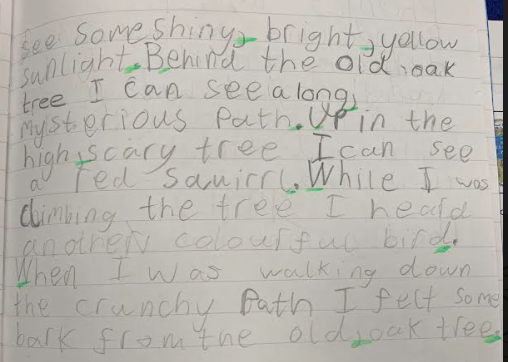 see some shiny, bright, yellow
sunlight. Behind the old, oak
tree I can see a long,
mysterious path. Up in the
high, scary tree I can see
a red squirrl. While I was
climbing the tree I heard
another colourful bird.
When I was walking down
the crunchy Path I felt some
bark from the old, oak tree.